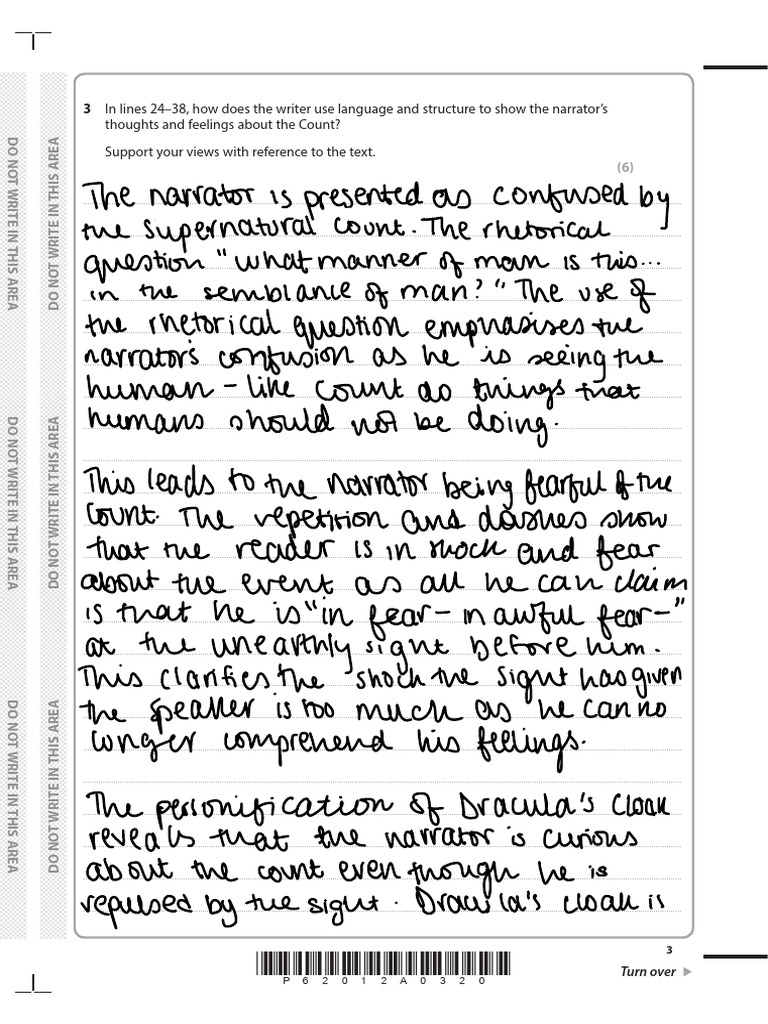 3 In lines 24–38, how does the writer use language and structure to show the narrator's
thoughts and feelings about the Count?
Support your views with reference to the text.
(6)
The narrator is presented as confused by
the supernatural count. The rhetorical
question "what manner of man is this...
in the semblance of man?" The use of
the rhetorical question emphasises the
narrators confusion as he is seeing the
human - like count do things that
humans should not be doing.
This leads to the narrator being fearful of the
count. The repetition and dashes show
that the reader is in shock and fear
about the event as all he can claim
is that he is "in fear - in awful fear -"
at the unearthly sight before him.
This clarifies the shock the sight has given
the speaker is too much as he can no
longer comprehend his feelings.
The personification of Dracula's cloak
reveals that the narrator is curious
about the count even though he is
repulsed by the sight. Dracula's cloak is
DO NOT WRITE IN THIS AREA
DO NOT WRITE IN THIS AREA
DO NOT WRITE IN THIS AREA
DO NOT WRITE IN THIS AREA
DO NOT WRITE IN THIS AREA
DO NOT WRITE IN THIS AREA
3
P62012A0320
Turn over